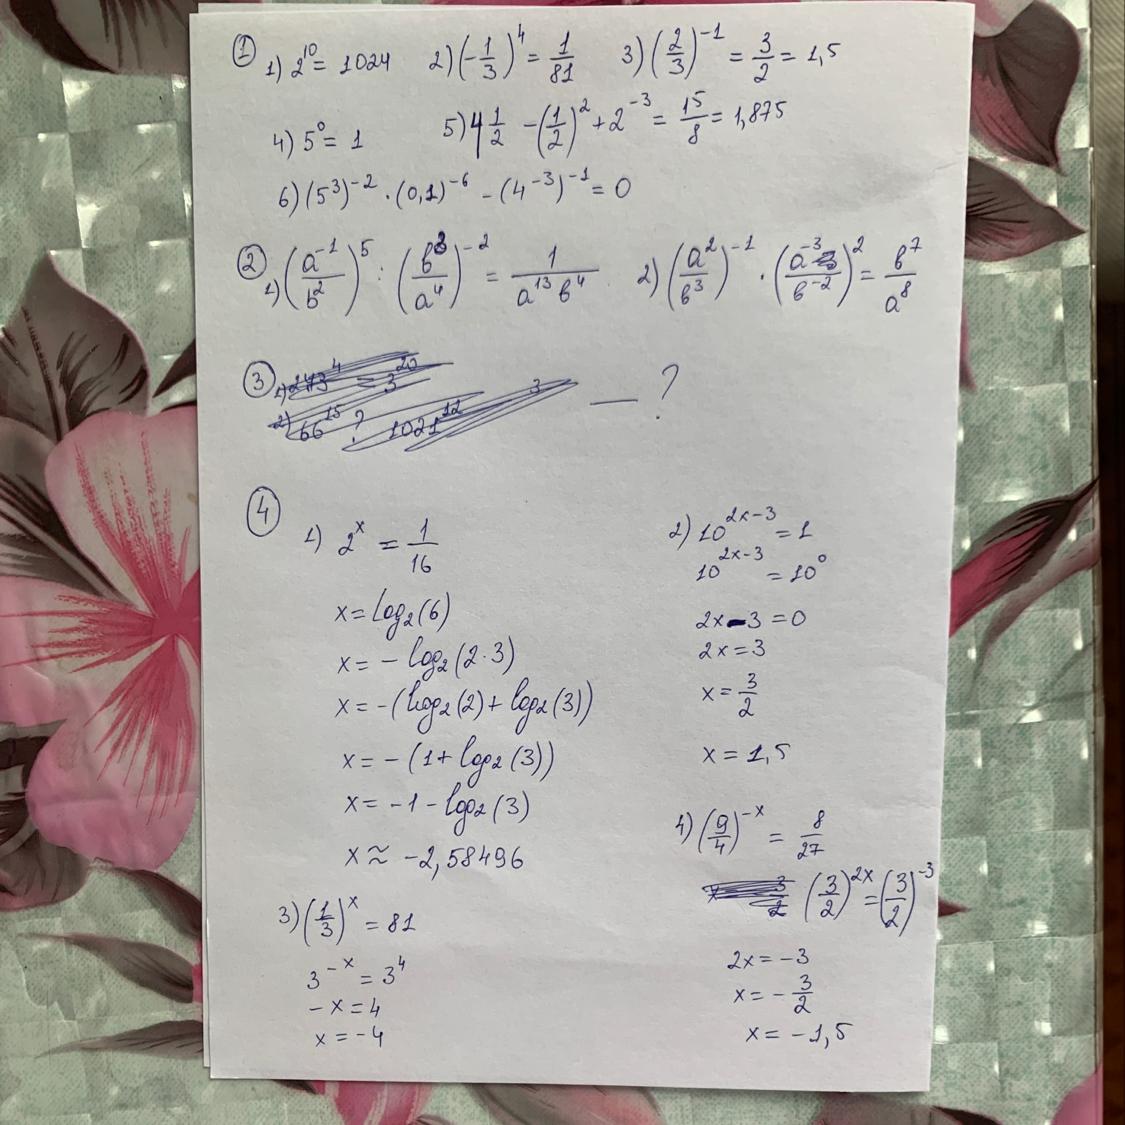 ① 1) 2^10 = 1024 2) (-1/3)^4 = 1/81 3) (2/3)^-1 = 3/2 = 1,5
4) 5^0 = 1 5) 4 1/2 - (1/2)^2 + 2^-3 = 15/8 = 1,875
6) (5^3)^-2 · (0,1)^-6 - (4^-3)^-1 = 0
② 1) (a^-1/b^2)^5 : (b^3/a^4)^-2 = 1/(a^13 b^4) 2) (a^2/b^3)^-1 · (a^-3/b^-2)^2 = b^7/a^8
③ — ?
④ 1) 2^x = 1/16
x = log₂(6)
x = - log₂(2·3)
x = -(log₂(2) + log₂(3))
x = - (1 + log₂(3))
x = -1 - log₂(3)
x ≈ -2,58496
2) 10^(2x-3) = 1
10^(2x-3) = 10^0
2x - 3 = 0
2x = 3
x = 3/2
x = 1,5
3) (1/3)^x = 81
3^-x = 3^4
- x = 4
x = -4
4) (9/4)^-x = 8/27
(3/2)^2x = (3/2)^-3
2x = -3
x = - 3/2
x = -1,5